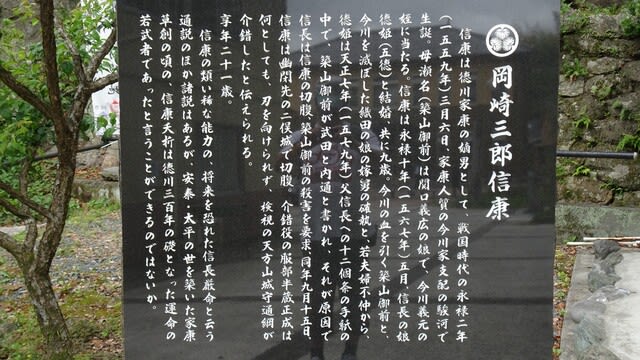 岡崎三郎信康
信康は徳川家康の嫡男として、戦国時代の永禄二年
(一五五九年)三月六日、家康人質の今川家支配の駿河で
生誕。母瀬名(築山御前)は関口義広の娘で、今川義元の
姪に当たる。信康は永禄十年(一五六七年)五月、信長の娘
徳姫(五徳)と結婚、共に九歳。今川の血を引く築山御前と、
今川を滅ぼした織田の娘の嫁舅の確執と、若夫婦不仲から、
徳姫は天正七年(一五七九年)父信長への十二個条の手紙の
中で、築山御前が武田と内通と書かれ、それが原因で
信長は信康の切腹、築山御前の殺害を要求、同年九月十五日、
信康は幽閉先の二俣城で切腹。介錯役の服部半蔵正成は
何としても、刀を向けられず、検視の天方山城守通綱が
介錯したと伝えられる。
享年二十一歳。
信康の類い稀な能力の、将来を恐れた信長厳命と云う
通説のほか諸説はあるが、安泰・太平の世を築いた家康
草創の頃の、信康夭折は徳川三百年の礎となった運命の
若武者であったと言うことができるのではないか。